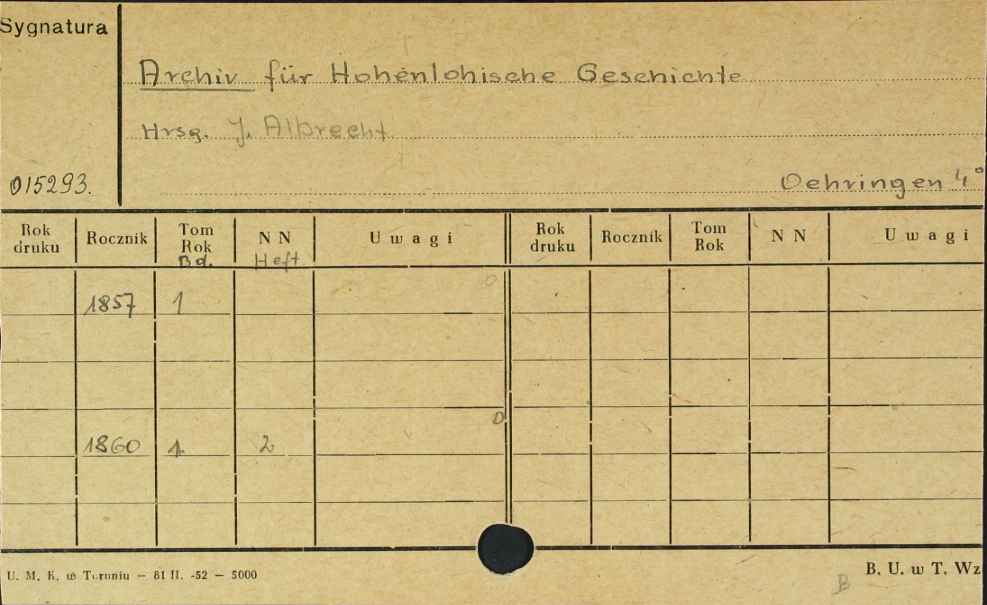 Sygnatura
Archiv für Hohenlohische Geschichte
Hrsg. J. Albrecht
015293.
Oehringen 4°
Rok druku Rocznik Tom Rok Bd. NN Heft Uwagi Rok druku Rocznik Tom Rok NN Uwagi
1857 1
1860 1 2
U. M. K. w Toruniu – 81 II. -52 – 5000
B. U. w T. Wz
B